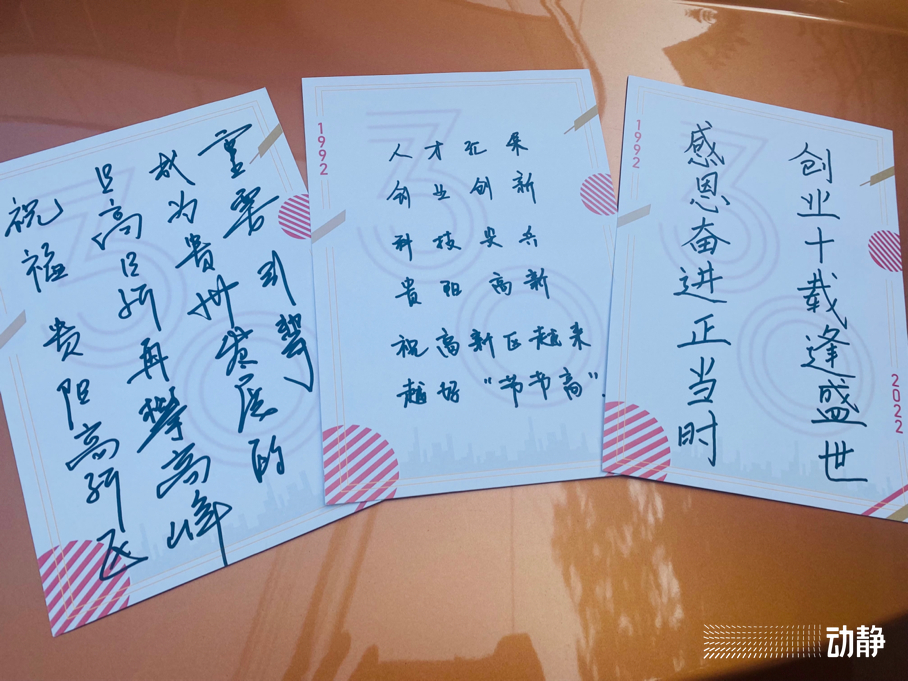 祝福贵阳高新区
且高且新再攀高峰
成为贵州发展的
重要引擎
1992
人才汇聚
创业创新
科技尖兵
贵阳高新
祝高新区越来
越好“节节高”
1992
创业十载逢盛世
感恩奋进正当时
2022
30
30
30
动静